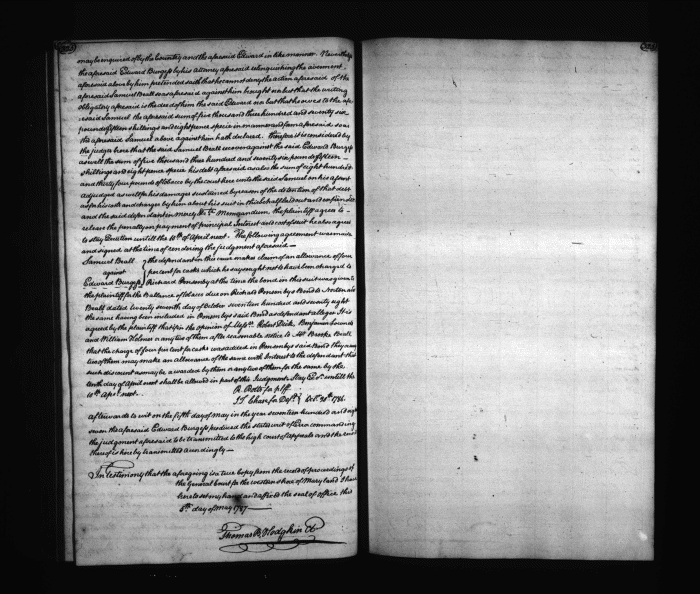 may be inquired of by the Country and the aforesaid Edward in like manner. Nevertheless
the aforesaid Edward Burgess by his attorney aforesaid relinquishing the averment
aforesaid above by him pretended saith that he cannot deny the action aforesaid of the
aforesaid Samuel Beall so as aforesaid against him brought nor but that the writing
obligatory aforesaid is the deed of him the said Edward nor but that he owes to the afo
resaid Samuel the aforesaid sum of five thousand three hundred and seventy six
pounds fifteen shillings and eight pence specie in manner and form aforesaid so as
the aforesaid Samuel above against him hath declared. Therefore it is considered by
the judges here that the said Samuel Beall recover against the said Edward Burgess
as well the sum of five thousand three hundred and seventy six pounds fifteen
shillings and eight pence specie his debt aforesaid as also the sum of eight hundred
and thirty four pounds of tobacco by the court here unto the said Samuel on his assent
adjudged as well for his damages sustained by reason of the detention of that debt
as for his costs and charges by him about his suit in this behalf laid out and
and the said defendant in mercy &c. Memorandum, the plaintiff agrees to
release the penalty on payment of principal Interest and cost of suit he also agrees
to stay Execution untill the 10th of April next. The following agreement was made
and signed at the time of rendering the judgment aforesaid —
Samuel Beall } the defendant in this cause makes claim of an allowance of four
against } per cent for casks which he says ought not to have been charged to
Edward Burgess } Richard Ponsonby at the time the bond in this suit was given to
the plaintiff for the Ballance of tobacco due on Richard Ponsonbys Bond to
Beall dated twenty seventh day of October seventeen hundred and seventy eight
the same having been included in Ponsonbys said Bond as defendant alleges It is
agreed by the plaintiff that if in the opinion of Messrs. Robert Dick, Benjamin Lowndes
and William Holmes or any two of them after reasonable notice to Mr Brooke Beall
that the charge of four per cent for casks was added in Ponsonbys said Bond they or any
two of them may make an allowance of the same with Interest to the defendant this
such discount as may be awarded by them or any two of them for the same by the
tenth day of April next shall be allowed in part of this Judgment. Stay Exo. untill the
10th Apr. next.
R. Potts for p lff
J T Chase for Deft. } Octr. 20th 1786
Afterwards to wit on the fifth day of may in the year seventeen hundred and eighty
seven the aforesaid Edward Burgess produced the states writ of Error commanding
the judgment aforesaid to be transmitted to the high court of appeals and the
thereof is hereby transmitted accordingly —
In testimony that the aforegoing is a true copy from the record of proceedings of
the General Court for the western shore of Maryland I have
hereto set my hand and affixed the seal of office this
5th day of May 1787
Thomas B. Hodgkin Cl